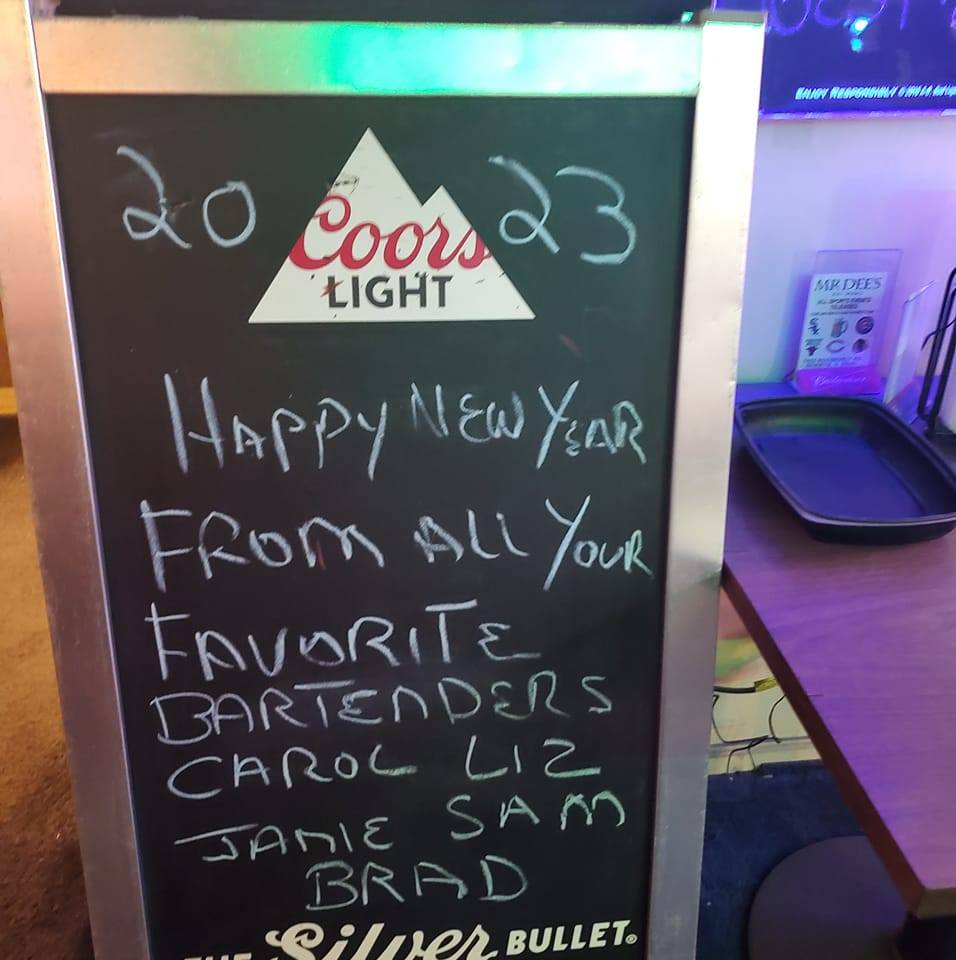 20 23
Coors
LIGHT
HAPPY NEW YEAR
FROM ALL YOUR
FAVORITE
BARTENDERS
CAROL LIZ
JAMIE SAM
BRAD
THE Silver BULLET®
ENJOY RESPONSIBLY
MR DEE'S
ALL SPORTS EVENTS
TELEVISED
Budweiser